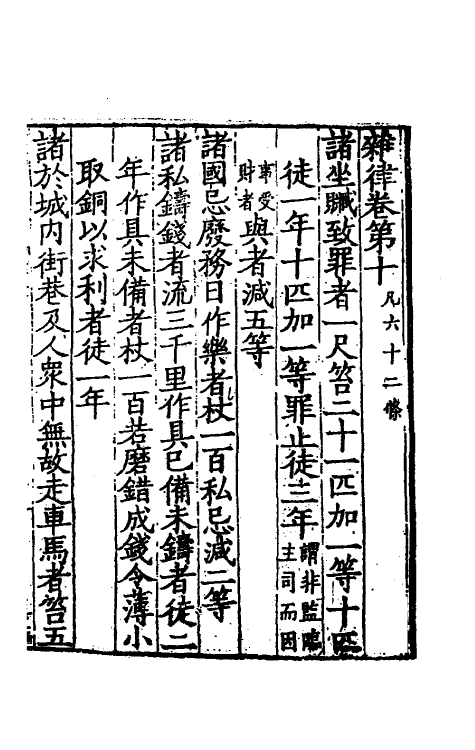 雜律卷第十 凡六十二條
諸坐贓致罪者一尺笞二十一匹加一等十匹
徒一年十匹加一等罪止徒三年 謂非監臨主司而因
事受財者 與者減五等
諸國忌廢務日作樂者杖一百私忌減二等
諸私鑄錢者流三千里作具已備未鑄者徒二
年作具未備者杖一百若磨錯成錢令薄小
取銅以求利者徒一年
諸於城内街巷及人衆中無故走車馬者笞五